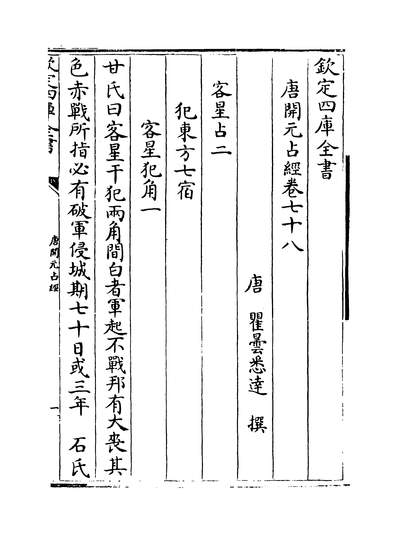 欽定四庫全書
唐開元占經卷七十八
唐 瞿曇悉達 撰
客星占二
犯東方七宿
客星犯角一
甘氏曰客星干犯兩角間白者軍起不戰邦有大喪其
色赤戰所指必有破軍侵城期七十日或三年 石氏
欽定四庫全書
唐開元占經
一